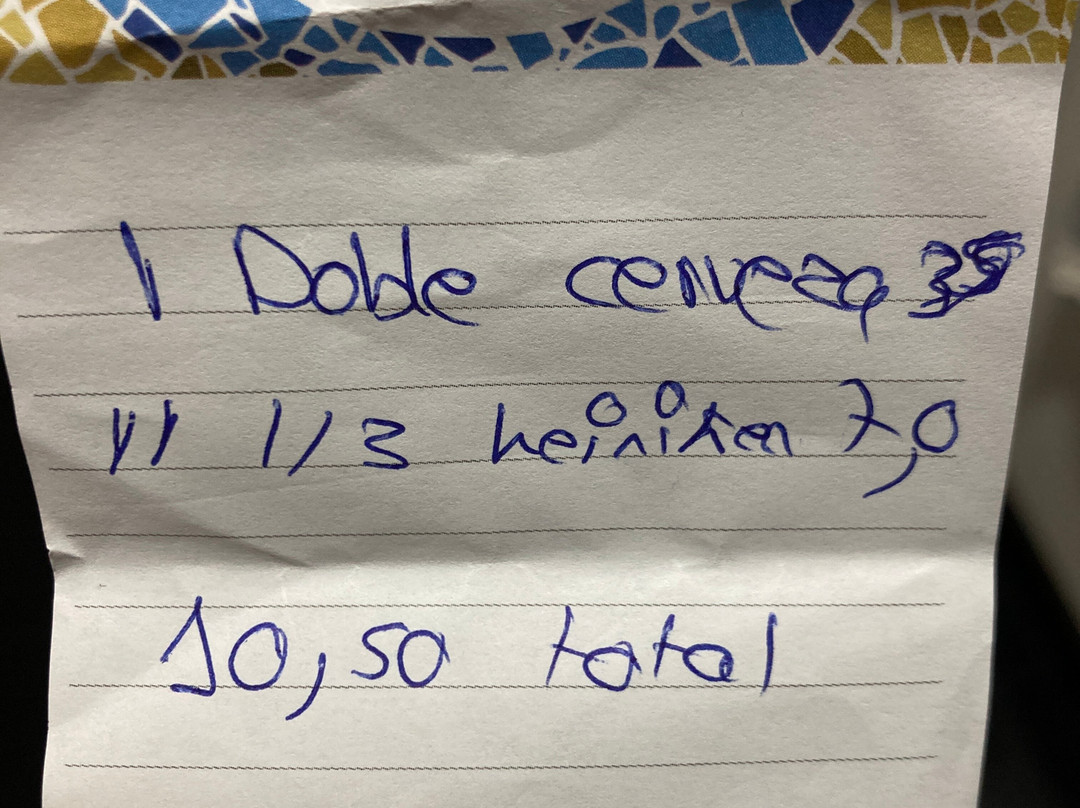 1 Doble cerveza 35
11 1/3 heiniken 7,0
10,50 total